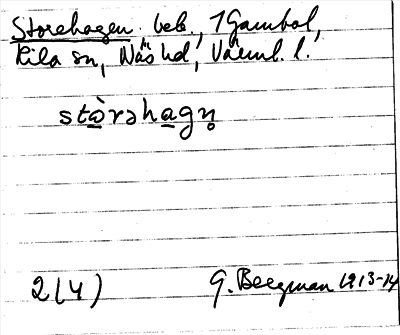 Storehagen. beb., 1 Gambol,
Kila sn, Näs hd, Värml. l.
stà̱rəha̱gn̥
2(4) G. Bergman 1913-14